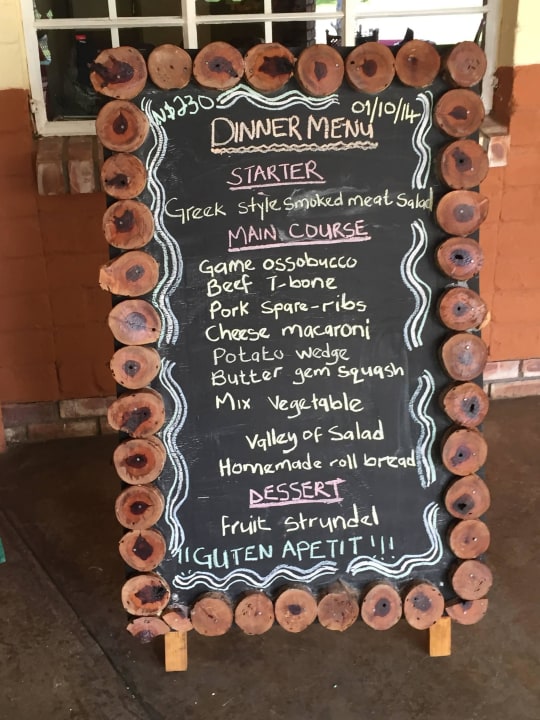 N$230 01/10/14
DINNER MENU
STARTER
Greek style smoked meat Salad
MAIN COURSE
Game ossobucco
Beef T-bone
Pork Spare-ribs
Cheese macaroni
Potato wedge
Butter gem squash
Mix Vegetable
Valley of Salad
Homemade roll bread
DESSERT
Fruit strundel
!!GUTEN APETIT!!!